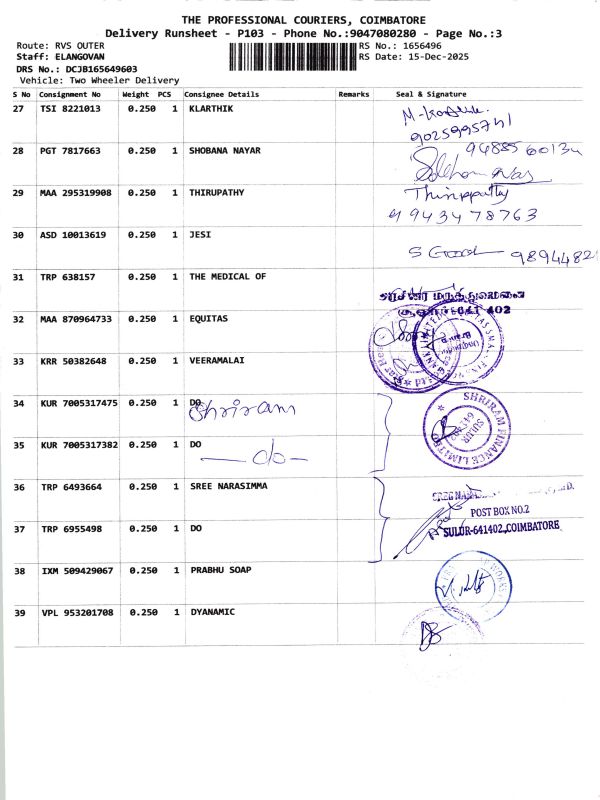 THE PROFESSIONAL COURIERS, COIMBATORE
Delivery Runsheet - P103 - Phone No.:9047080280 - Page No.:3
Route: RVS OUTER
RS No.: 1656496
Staff: ELANGOVAN
RS Date: 15-Dec-2025
DRS No.: DCJB165649603
Vehicle: Two Wheeler Delivery
S No Consignment No Weight PCS Consignee Details Remarks Seal & Signature
27 TSI 8221013 0.250 1 KLARTHIK
9025995741
28 PGT 7817663 0.250 1 SHOBANA NAYAR
29 MAA 295319908 0.250 1 THIRUPATHY
943478763
30 ASD 10013619 0.250 1 JESI
31 TRP 638157 0.250 1 THE MEDICAL OF
32 MAA 870964733 0.250 1 EQUITAS
33 KRR 50382648 0.250 1 VEERAMALAI
34 KUR 7005317475 1 0.250 DO
Shriram
SHRIRAM FINANCE LIMITED
SULUR
35 KUR 7005317382 0.250 1 DO
— do —
36 TRP 6493664 0.250 1 SREE NARASIMMA
POST BOX NO.2
37 TRP 6955498 0.250 1 DO
SULUR-641402,COIMBATORE
38 IXM 509429067 0.250 1 PRABHU SOAP
39 VPL 953201708 0.250 1 DYANAMIC